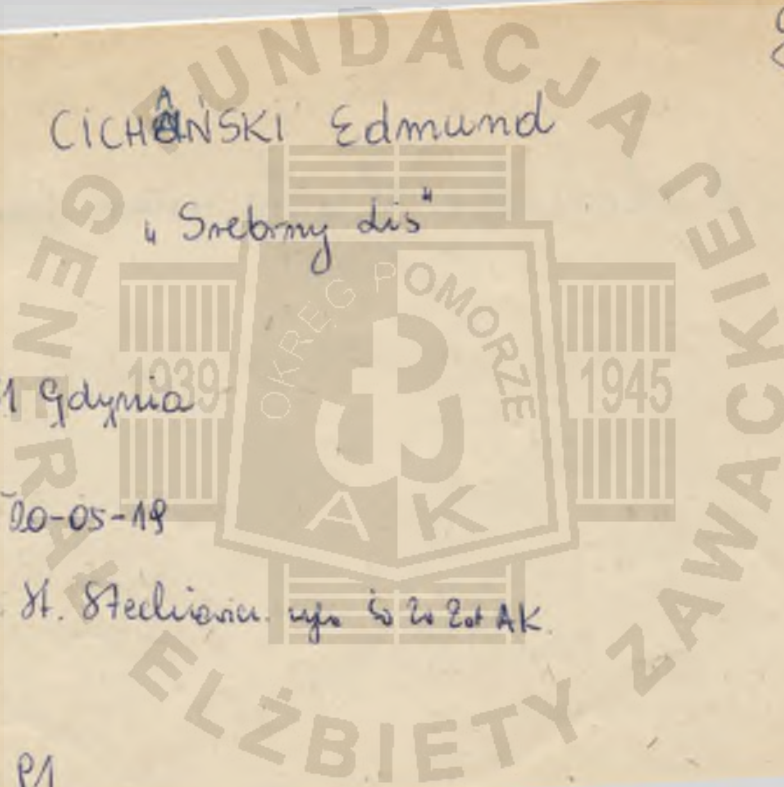 CICHAŃSKI Edmund
A
„Srebrny Lis"
1 Gdynia
20-05-19
St. Stechniewicz AK.
P1
FUNDACJA GENERAŁ ELŻBIETY ZAWACKIEJ
OKRĘG POMORZE
1939
1945
AK